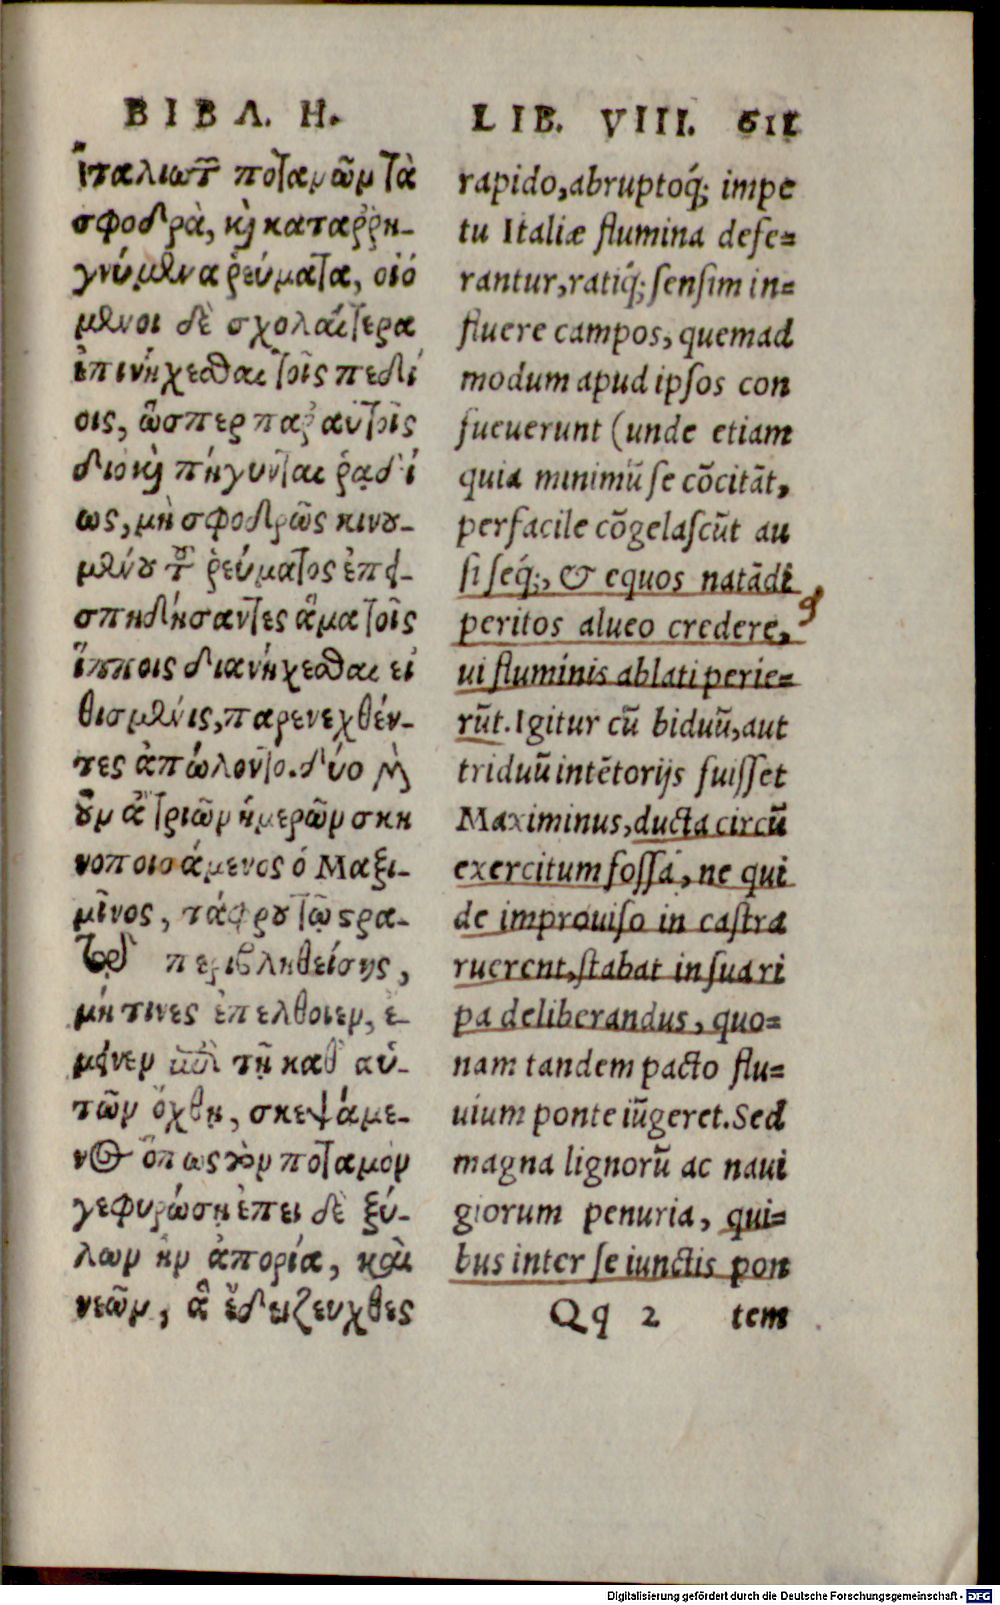 ΒΙΒΛ. Η.
ἰταλιωτῶν ποταμῶν τὰ
σφοδρὰ, καὶ καταῤῥη-
γνύμενα ῥεύματα, οἰό
μενοι δὲ σχολαίτερα
ἐπινήχεσθαι τοῖς πεδί
οις, ὥσπερ παρ αὐτοῖς
διο καὶ πήγνυνται ῥᾳδί
ως, μὴ σφοδρῶς κινου-
μένου τοῦ ῥεύματος ἐπει-
σπηδήσαντες ἅμα τοῖς
ἵπποις διανήχεσθαι εἰ
θισμένοις, παρενεχθέν-
τες ἀπώλοντο. δύο μὲν
οὖν ἢ τριῶν ἡμερῶν σκη
νοποισάμενος ὁ Μαξι-
μῖνος, τάφρου τῷ στρα-
τῷ περιβληθείσης,
μή τινες ἐπελθοιεν, ἔ-
μεινεν ἐπὶ τῇ καθ αὑ-
τῶν ὄχθῃ, σκεψάμε-
νος ὅπως τὸν ποταμὸν
γεφυρώσῃ ἐπει δὲ ξύ-
λων ἦν ἀπορία, καὶ
νεῶν, ἃ ἔδει ζευχθεσ
LIB. VIII. 611
rapido, abruptoq́; impe
tu Italiæ flumina defe=
rantur, ratiq́; sensim in=
fluere campos, quemad
modum apud ipsos con
sueuerunt (unde etiam
quia minimū se cōcitāt,
perfacile cōgelascūt au
si seq́;, & equos natādi
peritos alueo credere,
ui fluminis ablati perie=
rūt. Igitur cū biduū, aut
triduū intētorijs fuisset
Maximinus, ducta circū
exercitum fossa, ne qui
de improuiso in castra
ruerent, stabat in sua ri
pa deliberandus, quo=
nam tandem pacto flu=
uium ponte iūgeret. Sed
magna lignorū ac naui
giorum penuria, qui=
bus inter se iunctis pon
Qq 2 tem
Digitalisierung gefördert durch die Deutsche Forschungsgemeinschaft - DFG